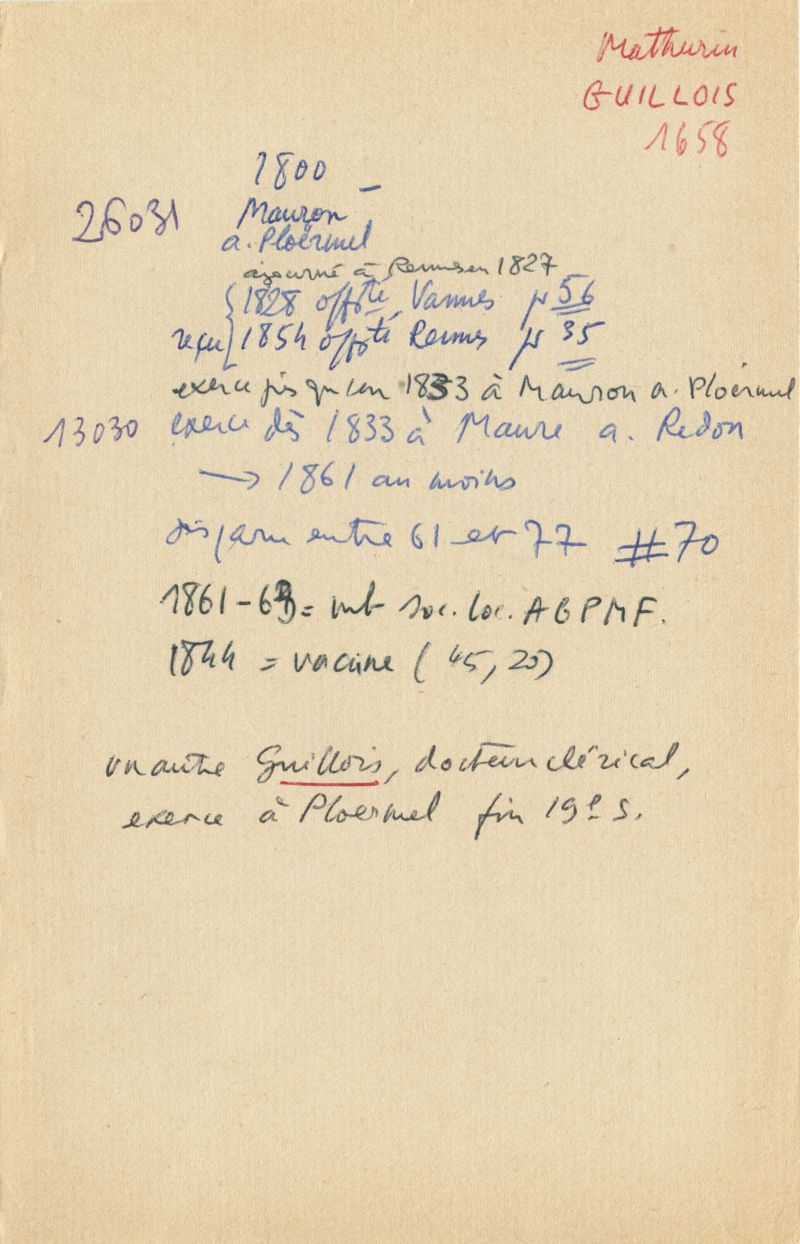 Mathurin
GUILLOIS
1658
1800 –
26031 Mauron
a. Ploërmel
ajourné à Rennes en 1827
1828 offté Vannes pr 56
reçu 1854 offté Rennes pr 35
exerce jusqu'en 1833 à Mauron a. Ploërmel
13030 exerce dès 1833 à Maure a. Redon
→ 1861 au moins
disparu entre 61 et 77 #70
1861-63 = mb soc. loc. AGPMF.
1844 = vaccine (45, 20)
un autre Guillois, docteur clérical,
exerce à Ploermel fin 19e s.